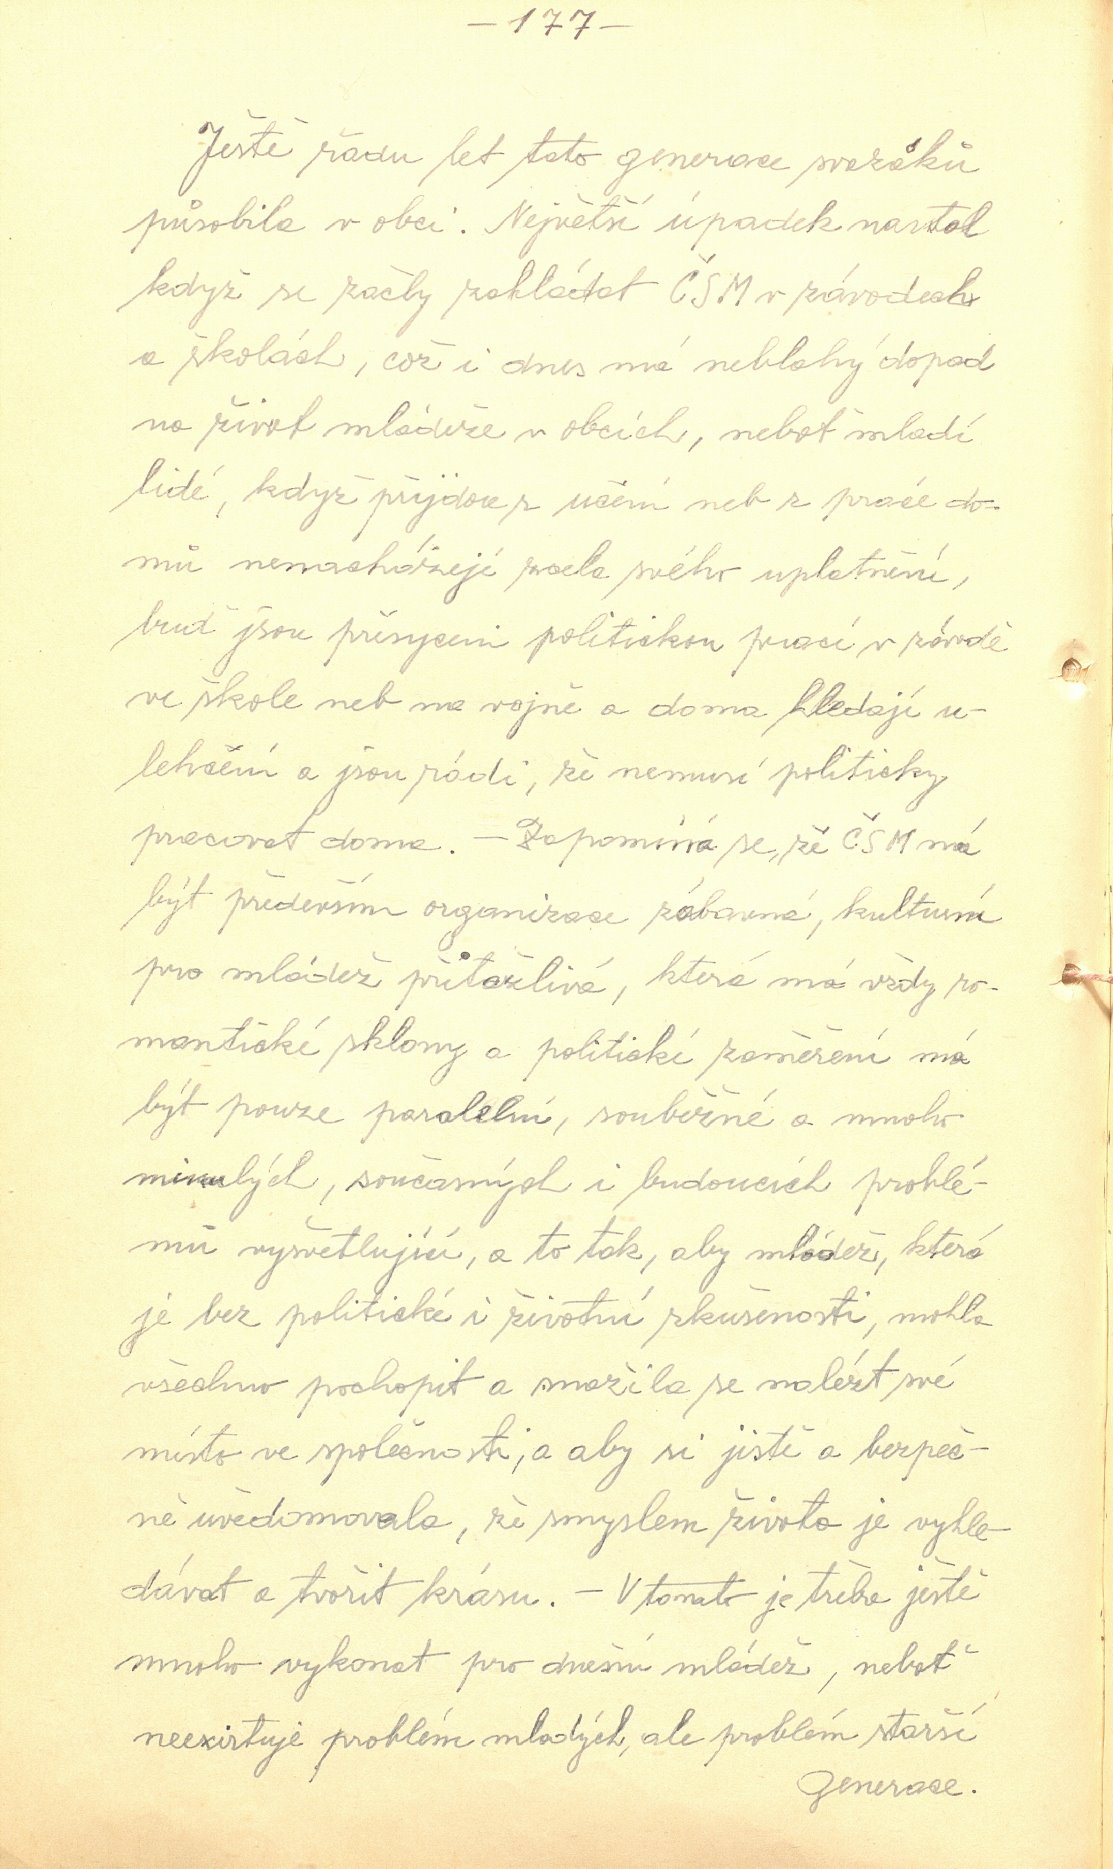 – 177 –
Ještě řadu let tato generace svazáků
působila v obci. Největší úpadek nastal
když se začly zakládat ČSM v závodech
a školách, což i dnes má neblahý dopad
na život mládeže v obcích, neboť mladí
lidé, když přijdou z učení neb z práce do-
mů nenacházejí zcela svého uplatnění,
buď jsou přesyceni politickou prací v závodě
ve škole neb na vojně a doma hledají u-
lehčení a jsou rádi, že nemusí politicky
pracovat doma. – Zapomíná se, že ČSM má
být především organizace zábavná, kulturní
pro mládež přitažlivá, která má vždy ro-
mantické sklony a politické zaměření má
být pouze paralelní, souběžné a mnoho
minulých, současných i budoucích problé-
mů vysvětlující, a to tak, aby mládež, která
je bez politické i životní zkušenosti, mohla
všechno pochopit a snažila se nalézt své
místo ve společnosti, a aby si jistě a bezpeč-
ně uvědomovala, že smyslem života je vyhle-
dávat a tvořit krásu. – V tomto je třeba ještě
mnoho vykonat pro dnešní mládež, neboť
neexistuje problém mladých, ale problém starší
generace.